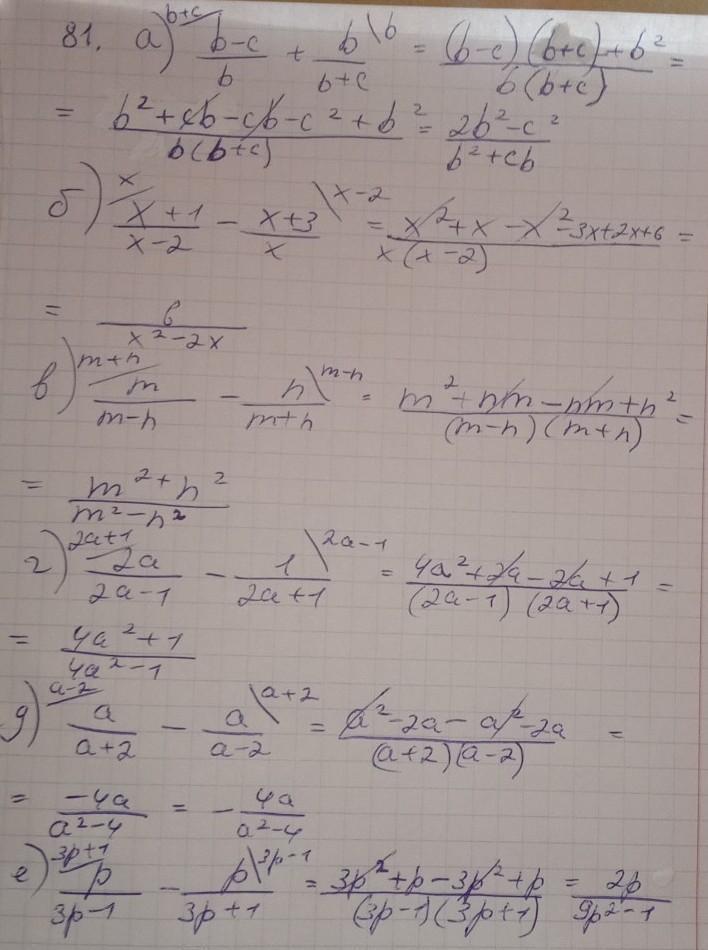 81. а) (b-c)/b \ b+c + b/(b+c) \ b = ((b-c)(b+c)+b²)/(b(b+c)) =
= (b²+cb-cb-c²+b²)/(b(b+c)) = (2b²-c²)/(b²+cb)
б) (x+1)/(x-2) \ x - (x+3)/x \ x-2 = (x²+x-x²-3x+2x+6)/(x(x-2)) =
= 6/(x²-2x)
в) m/(m-n) \ m+n - n/(m+n) \ m-n = (m²+nm-nm+n²)/((m-n)(m+n)) =
= (m²+n²)/(m²-n²)
г) 2a/(2a-1) \ 2a+1 - 1/(2a+1) \ 2a-1 = (4a²+2a-2a+1)/((2a-1)(2a+1)) =
= (4a²+1)/(4a²-1)
д) a/(a+2) \ a-2 - a/(a-2) \ a+2 = (a²-2a-a²-2a)/((a+2)(a-2)) =
= -4a/(a²-4) = - 4a/(a²-4)
е) p/(3p-1) \ 3p+1 - p/(3p+1) \ 3p-1 = (3p²+p-3p²+p)/((3p-1)(3p+1)) = 2p/(9p²-1)